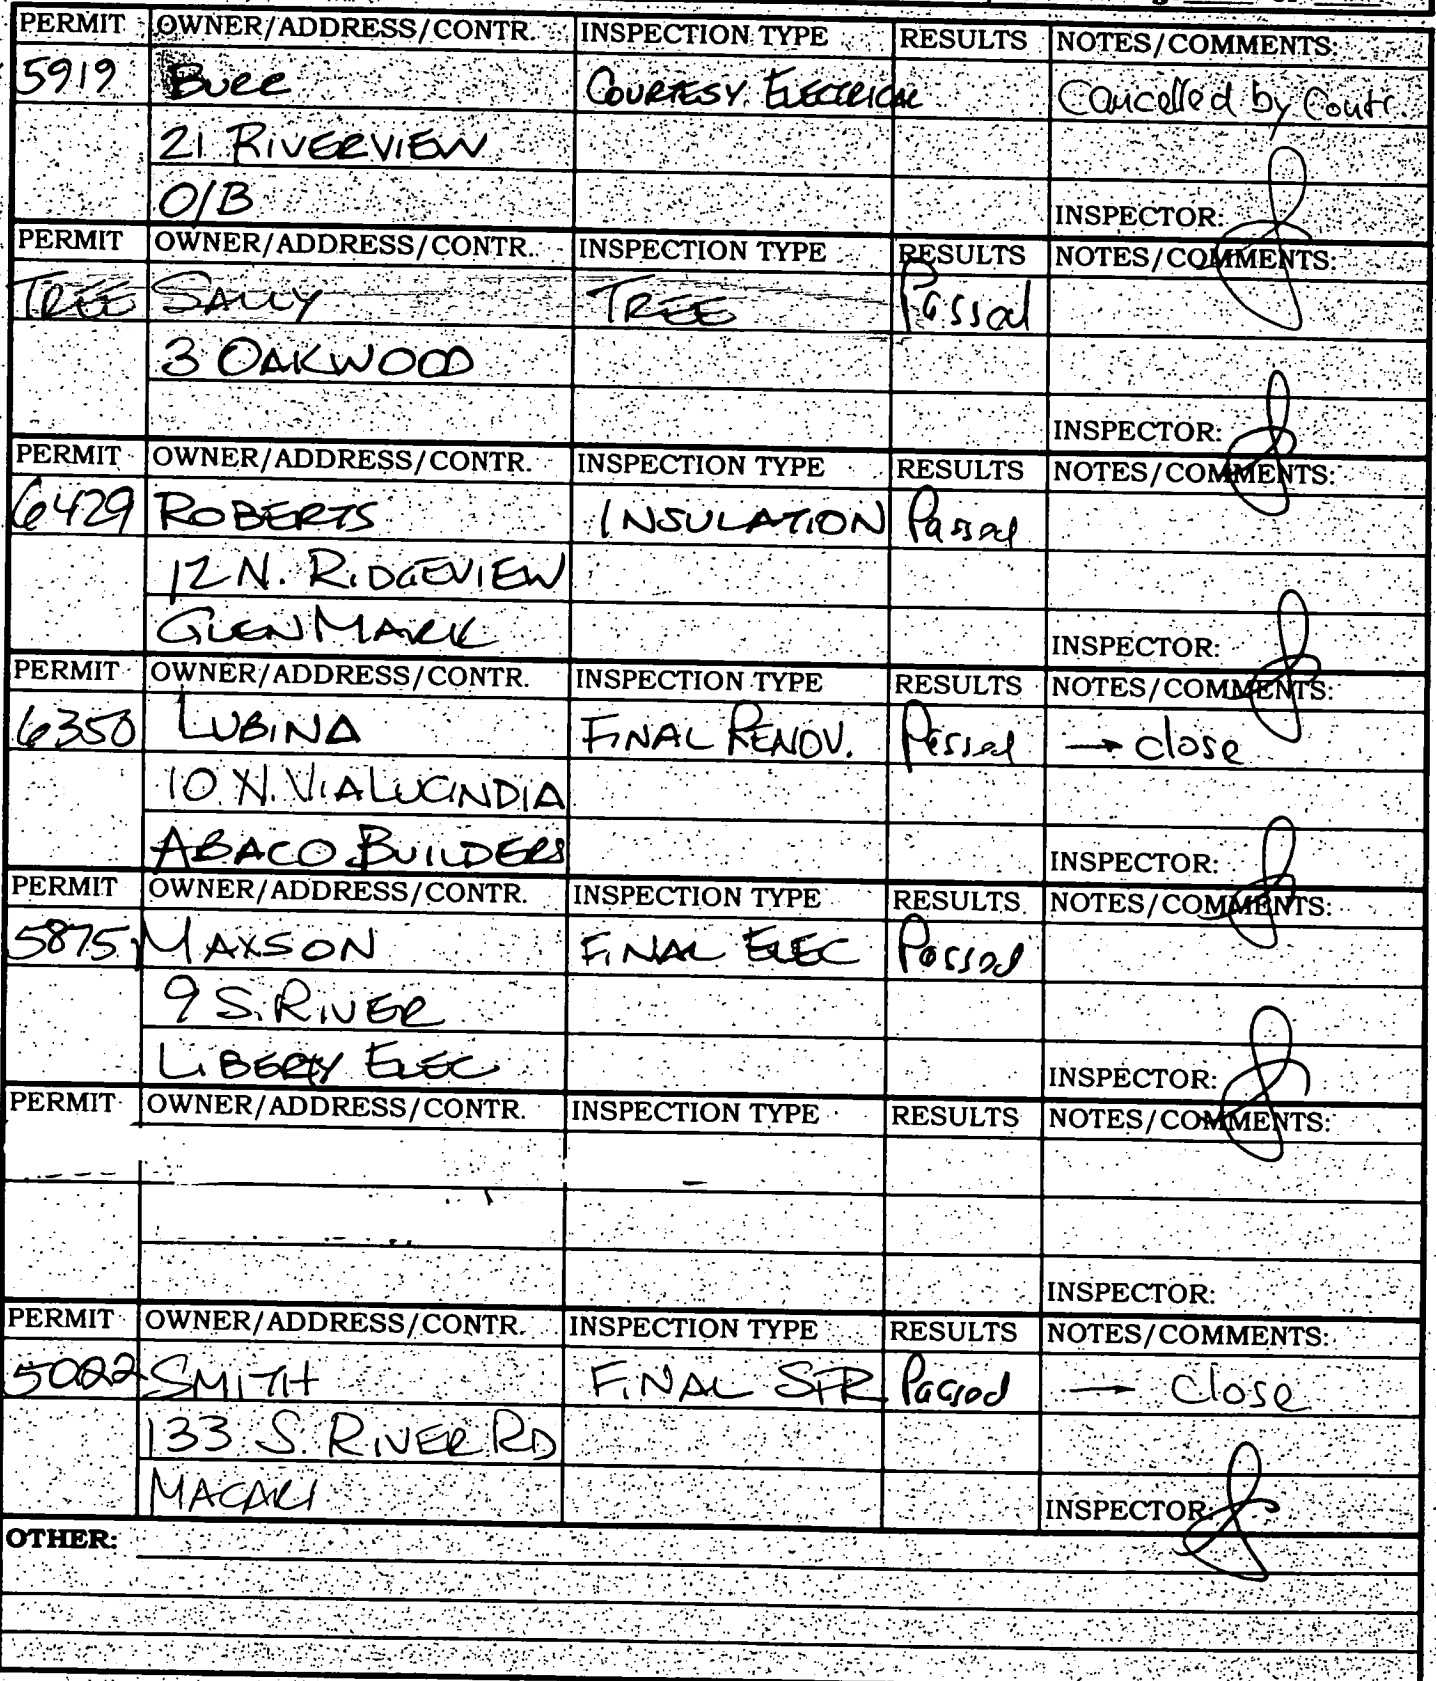 PERMIT OWNER/ADDRESS/CONTR. INSPECTION TYPE RESULTS NOTES/COMMENTS:
5919 Burr COURTESY ELECTRICAL Cancelled by Contr.
21 RIVERVIEW
O/B INSPECTOR:
PERMIT OWNER/ADDRESS/CONTR. INSPECTION TYPE RESULTS NOTES/COMMENTS:
TREE SALLY TREE Passed
3 OAKWOOD
INSPECTOR:
PERMIT OWNER/ADDRESS/CONTR. INSPECTION TYPE RESULTS NOTES/COMMENTS:
6429 ROBERTS INSULATION Passed
12 N. RIDGEVIEW
GLENMARK INSPECTOR:
PERMIT OWNER/ADDRESS/CONTR. INSPECTION TYPE RESULTS NOTES/COMMENTS:
6350 LUBINA FINAL RENOV. Passed → close
10 N. VIA LUCINDIA
ABACO BUILDERS INSPECTOR:
PERMIT OWNER/ADDRESS/CONTR. INSPECTION TYPE RESULTS NOTES/COMMENTS:
5875 MAXSON FINAL ELEC Passed
9 S. RIVER
LIBERTY ELEC INSPECTOR:
PERMIT OWNER/ADDRESS/CONTR. INSPECTION TYPE RESULTS NOTES/COMMENTS:
INSPECTOR:
PERMIT OWNER/ADDRESS/CONTR. INSPECTION TYPE RESULTS NOTES/COMMENTS:
5022 SMITH FINAL SFR Passed → close
133 S. RIVER RD
MACARI INSPECTOR:
OTHER: